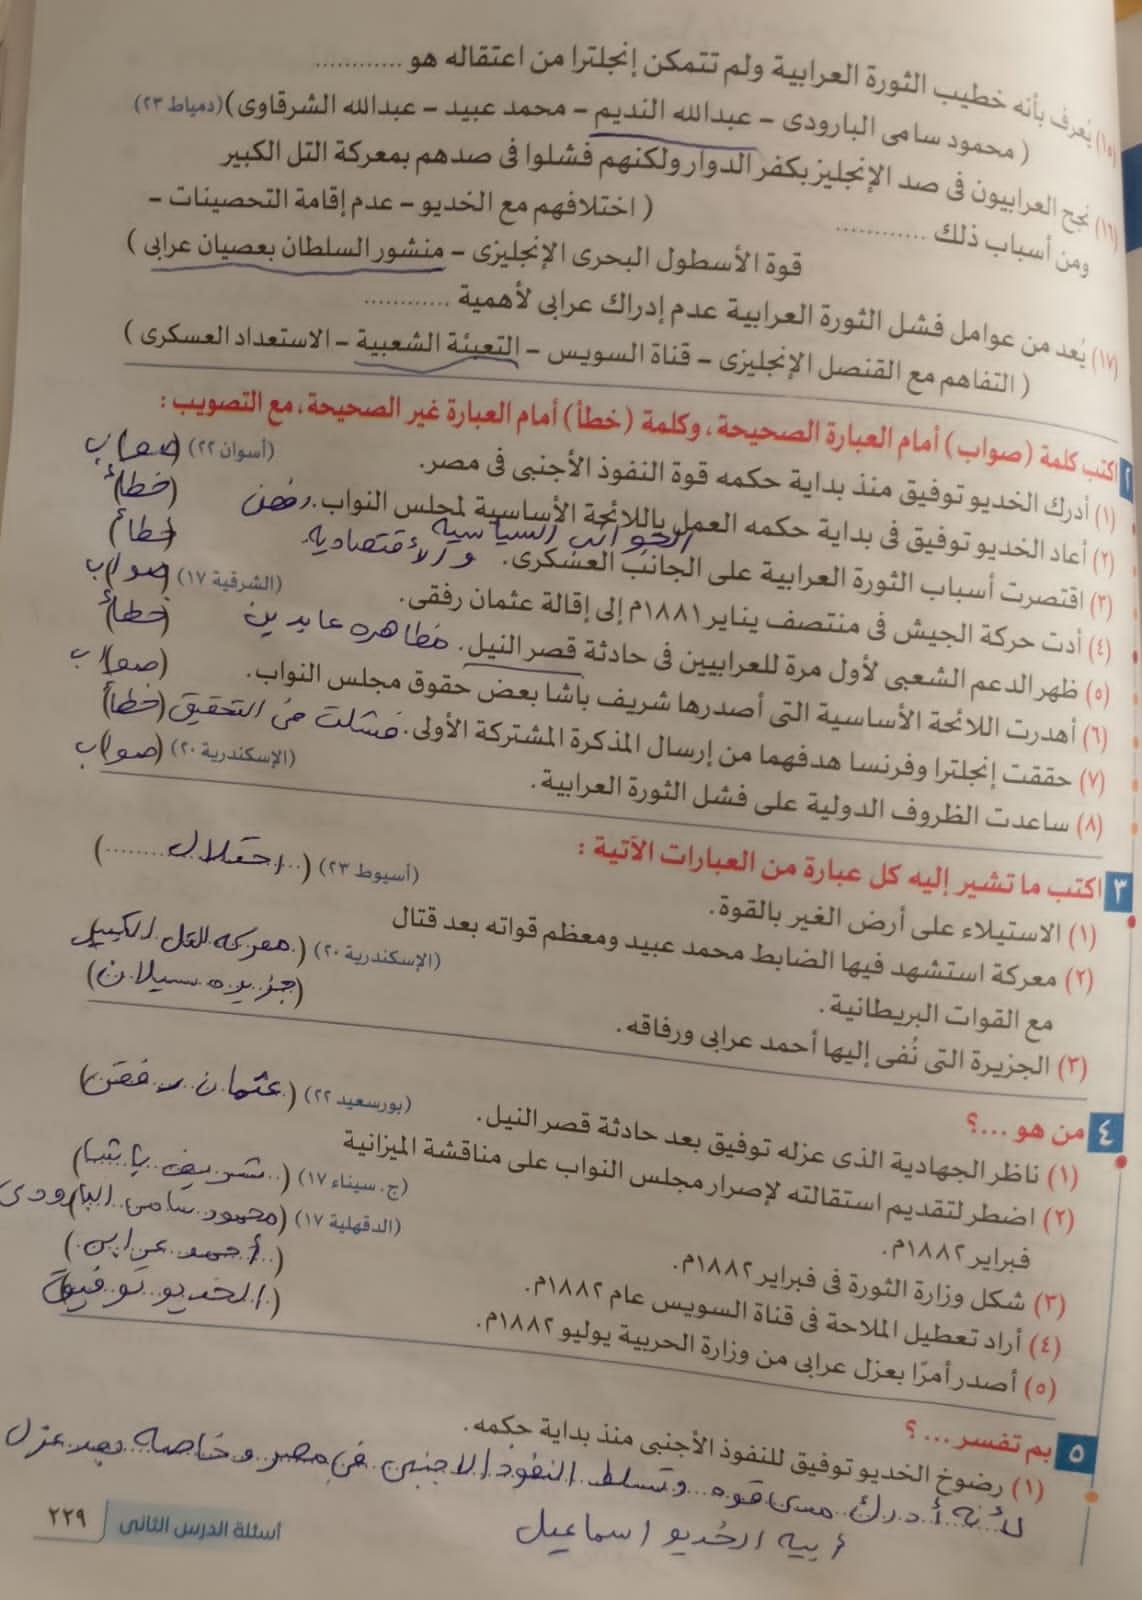 (١٥) يُعرف بأنه خطيب الثورة العرابية ولم تتمكن إنجلترا من اعتقاله هو ............
( محمود سامى البارودى - عبدالله النديم - محمد عبيد - عبدالله الشرقاوى) (دمياط ٢٣)
(١٦) نجح العرابيون فى صد الإنجليز بكفر الدوار ولكنهم فشلوا فى صدهم بمعركة التل الكبير
ومن أسباب ذلك ............ ( اختلافهم مع الخديو - عدم إقامة التحصينات -
قوة الأسطول البحرى الإنجليزى - منشور السلطان بعصيان عرابى )
(١٧) يُعد من عوامل فشل الثورة العرابية عدم إدراك عرابى لأهمية ............
( التفاهم مع القنصل الإنجليزى - قناة السويس - التعبئة الشعبية - الاستعداد العسكرى )
٢ اكتب كلمة (صواب) أمام العبارة الصحيحة، وكلمة (خطأ) أمام العبارة غير الصحيحة، مع التصويب :
(١) أدرك الخديو توفيق منذ بداية حكمه قوة النفوذ الأجنبى فى مصر. (أسوان ٢٢) (صواب)
(٢) أعاد الخديو توفيق فى بداية حكمه العمل باللائحة الأساسية لمجلس النواب. رفض (خطأ)
(٣) اقتصرت أسباب الثورة العرابية على الجانب العسكرى. الجوانب السياسيه والاقتصاديه. (خطأ)
(٤) أدت حركة الجيش فى منتصف يناير ١٨٨١م إلى إقالة عثمان رفقى. (الشرقية ١٧) (صواب)
(٥) ظهر الدعم الشعبى لأول مرة للعرابيين فى حادثة قصر النيل. مظاهره عابدين (خطأ)
(٦) أهدرت اللائحة الأساسية التى أصدرها شريف باشا بعض حقوق مجلس النواب. (صواب)
(٧) حققت إنجلترا وفرنسا هدفهما من إرسال المذكرة المشتركة الأولى. فشلت فى التحقيق (خطأ)
(٨) ساعدت الظروف الدولية على فشل الثورة العرابية. (الإسكندرية ٢٠) (صواب)
٣ اكتب ما تشير إليه كل عبارة من العبارات الآتية :
(١) الاستيلاء على أرض الغير بالقوة. (أسيوط ٢٣) (احتلال)
(٢) معركة استشهد فيها الضابط محمد عبيد ومعظم قواته بعد قتال
مع القوات البريطانية. (الإسكندرية ٢٠) (معركه التل الكبير)
(٣) الجزيرة التى نُفى إليها أحمد عرابى ورفاقه. (جزيره سيلان)
٤ من هو ...؟
(١) ناظر الجهادية الذى عزله توفيق بعد حادثة قصر النيل. (بورسعيد ٢٢) (عثمان رفقى)
(٢) اضطر لتقديم استقالته لإصرار مجلس النواب على مناقشة الميزانية
فبراير ١٨٨٢م. (ج. سيناء ١٧) (شريف باشا)
(٣) شكل وزارة الثورة فى فبراير ١٨٨٢م. (الدقهلية ١٧) (محمود سامى البارودى)
(٤) أراد تعطيل الملاحة فى قناة السويس عام ١٨٨٢م. (أحمد عرابى)
(٥) أصدر أمرًا بعزل عرابى من وزارة الحربية يوليو ١٨٨٢م. (الخديو توفيق)
٥ بم تفسر ...؟
(١) رضوخ الخديو توفيق للنفوذ الأجنبى منذ بداية حكمه.
لأنه أدرك مدى قوه وتسلط النفوذ الاجنبى فى مصر وخاصه بعد عزل
أبيه الخديو اسماعيل
أسئلة الدرس الثانى ٢٢٩